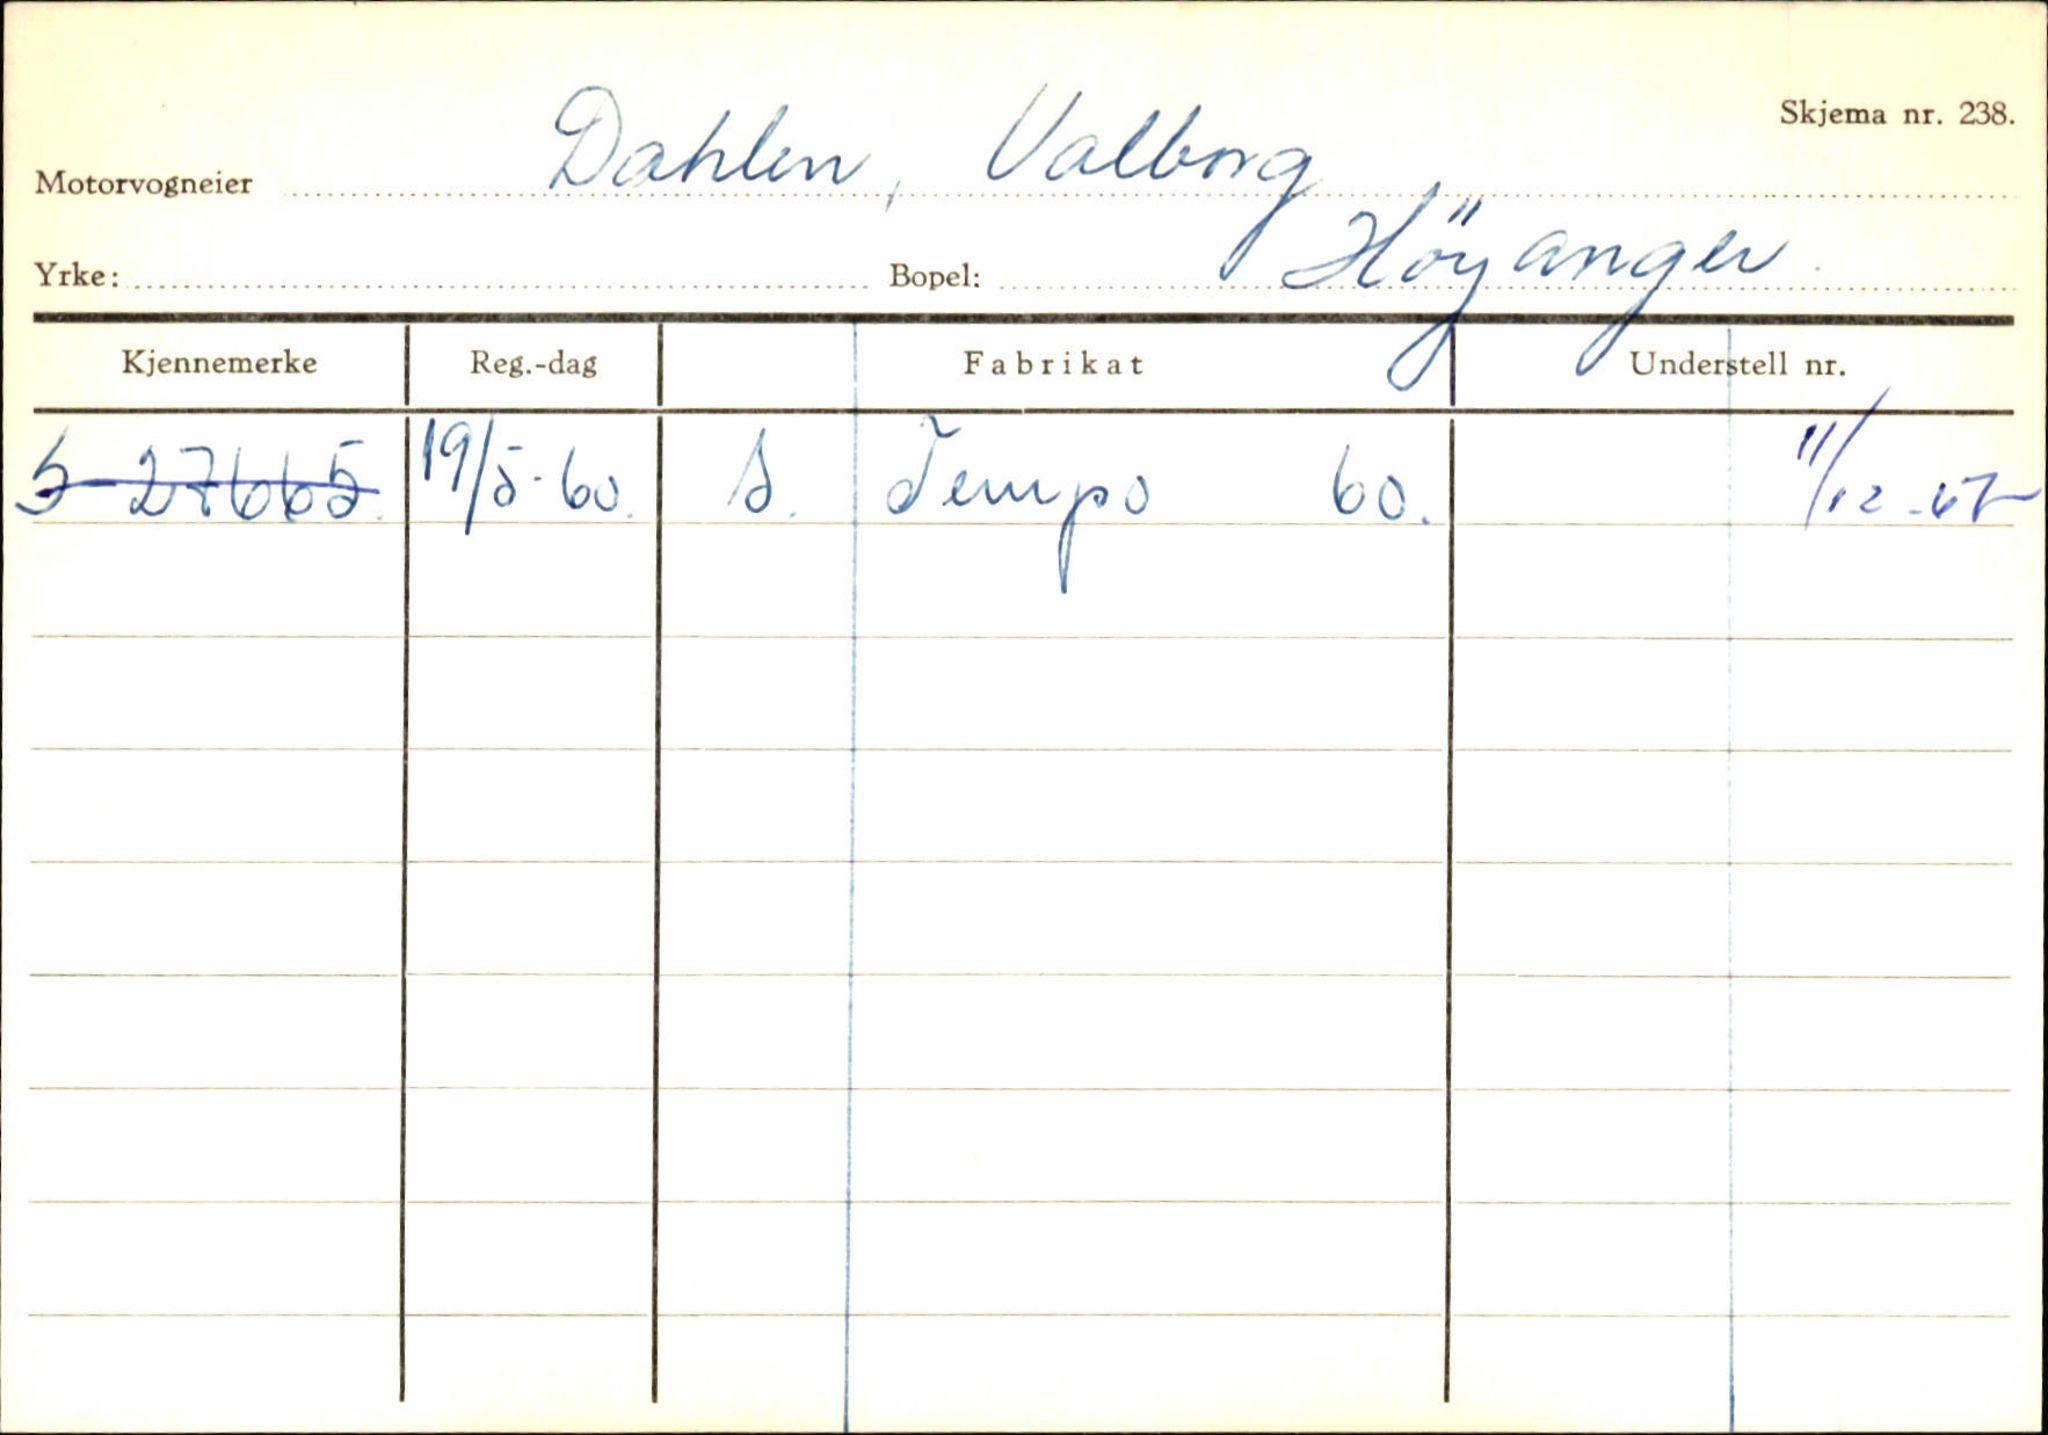 Skjema nr. 238.
Motorvogneier Dahlen, Valborg
Yrke: Bopel: Höyanger
Kjennemerke Reg.-dag Fabrikat Understell nr.
S 27665. 19/5-60. S. Tempo 60. 11/12-67